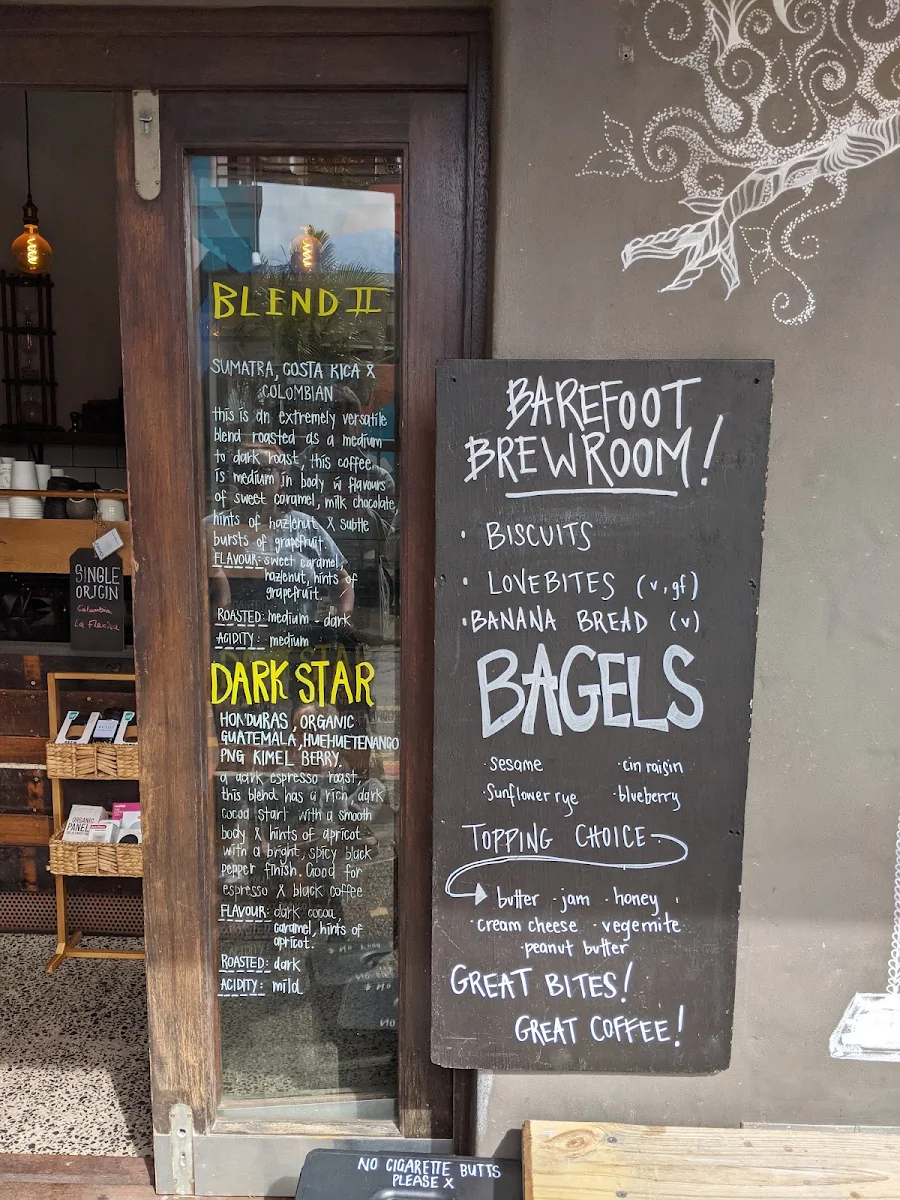 BLEND II
SUMATRA, COSTA RICA &
COLOMBIAN
this is an extremely versatile
blend roasted as a medium
to dark roast, this coffee
is medium in body w̄ flavours
of sweet caramel, milk chocolate,
hints of hazlenut & subtle
bursts of grapefruit.
FLAVOUR: sweet caramel,
hazlenut, hints of
grapefruit.
ROASTED: medium - dark
ACIDITY: medium
DARK STAR
HONDURAS, ORGANIC
GUATEMALA, HUEHUETENANGO
PNG KIMEL BERRY.
a dark espresso roast,
this blend has a rich dark
cocoa start with a smooth
body & hints of apricot
with a bright, spicy black
pepper finish. Good for
espresso & black coffee
FLAVOUR: dark cocoa,
caramel, hints of
apricot.
ROASTED: dark
ACIDITY: mild
SINGLE
ORIGIN
Colombia
ORGANIC
PANEL
BAREFOOT
BREWROOM!
· BISCUITS
· LOVEBITES (v,gf)
· BANANA BREAD (v)
BAGELS
· sesame · cin raisin
· Sunflower rye · blueberry
TOPPING CHOICE
butter · jam · honey
· cream cheese · vegemite
peanut butter
GREAT BITES!
GREAT COFFEE!
NO CIGARETTE BUTTS
PLEASE X